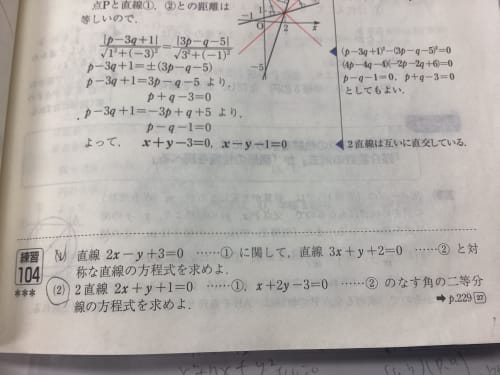 点Pと直線①, ②との距離は
等しいので,
|p−3q+1|/√(1²+(−3)²) = |3p−q−5|/√(3²+(−1)²)
p−3q+1=±(3p−q−5)
p−3q+1=3p−q−5 より,
p+q−3=0
p−3q+1=−3p+q+5 より,
p−q−1=0
よって, x+y−3=0, x−y−1=0
1
−1
O
2
x
−5
(p−3q+1)²−(3p−q−5)²=0
(4p−4q−4)(−2p−2q+6)=0
p−q−1=0, p+q−3=0
としてもよい.
2直線は互いに直交している.
練習
104
***
(1) 直線 2x−y+3=0 ……① に関して, 直線 3x+y+2=0 ……② と対
称な直線の方程式を求めよ.
(2) 2直線 2x+y+1=0 ……①, x+2y−3=0 ……② のなす角の二等分
線の方程式を求めよ.
➡ p.229 27